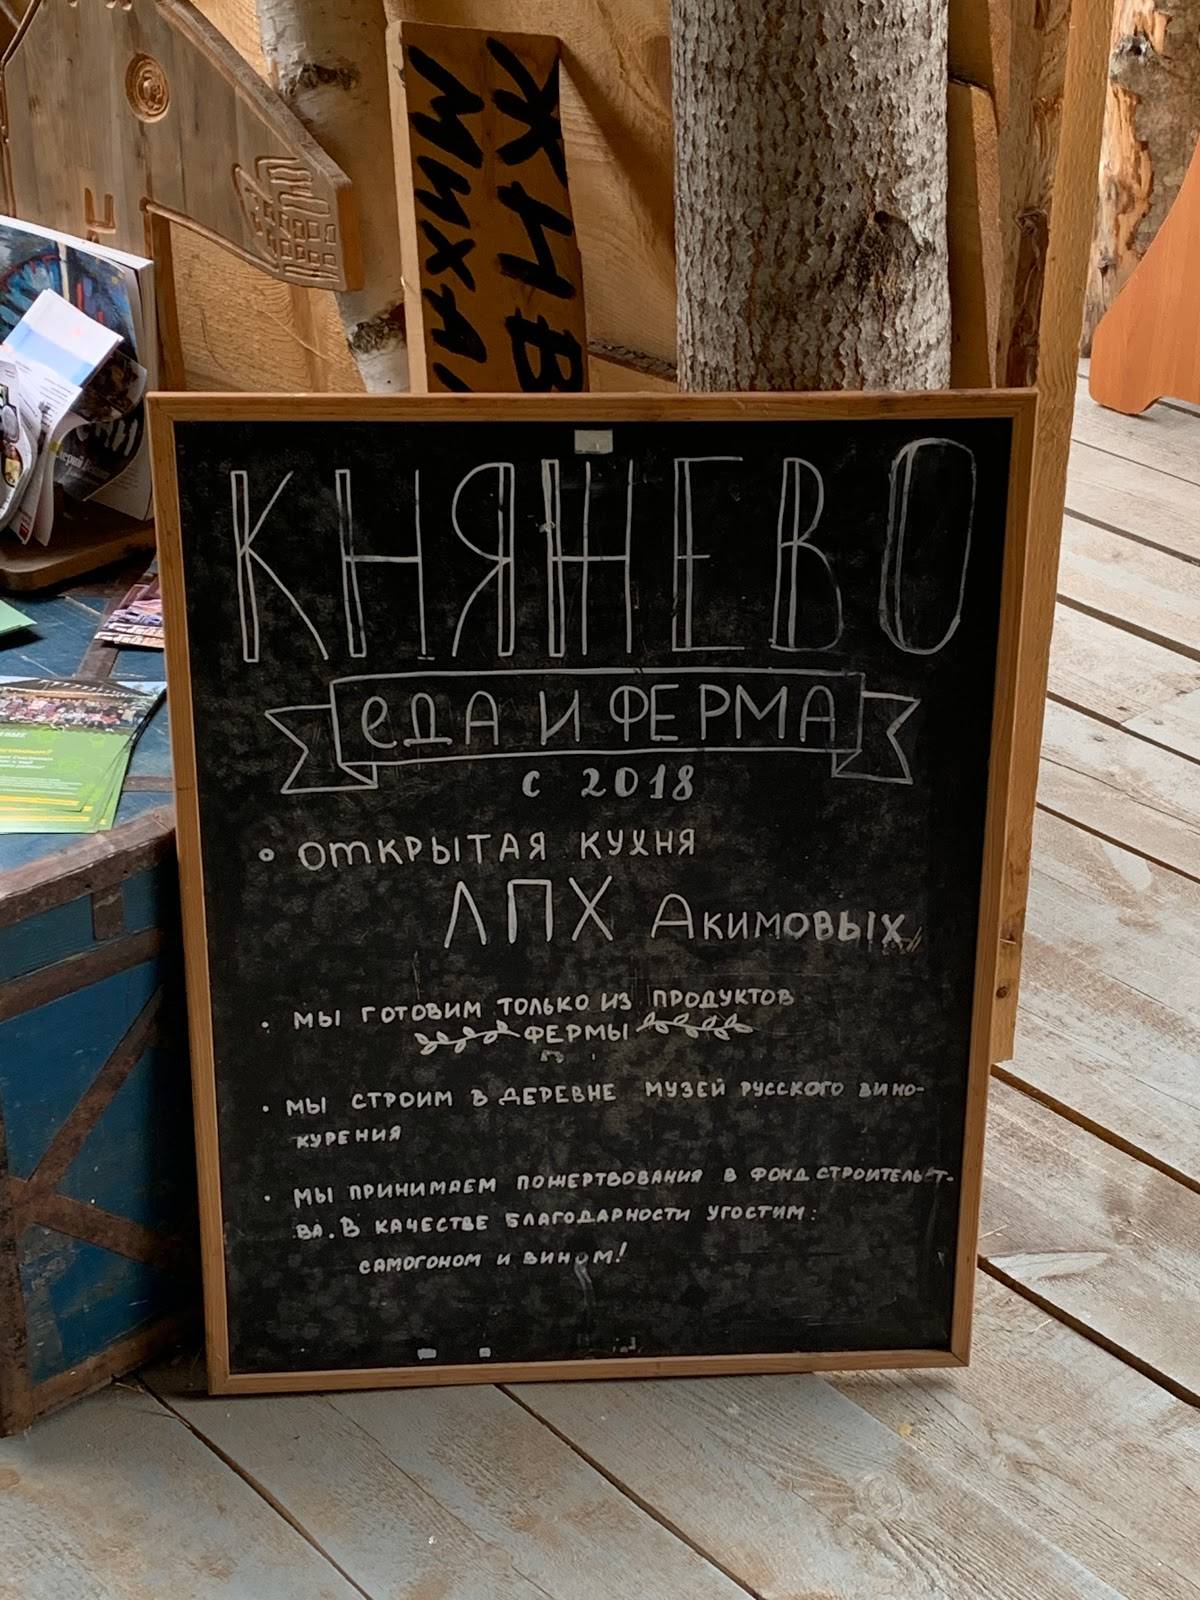 ЖНВ
МИХА
КНЯЖЕВО
еДА И ФЕРМА
С 2018
ОТКРЫТАЯ КУХНЯ
ЛПХ АКИМОВЫХ
МЫ ГОТОВИМ ТОЛЬКО ИЗ ПРОДУКТОВ
ФЕРМЫ
МЫ СТРОИМ В ДЕРЕВНЕ МУЗЕЙ РУССКОГО ВИНО-
КУРЕНИЯ
МЫ ПРИНИМАЕМ ПОЖЕРТВОВАНИЯ В ФОНД СТРОИТЕЛЬСТ-
ВА. В КАЧЕСТВЕ БЛАГОДАРНОСТИ УГОСТИМ:
САМОГОНОМ И ВИНОМ!